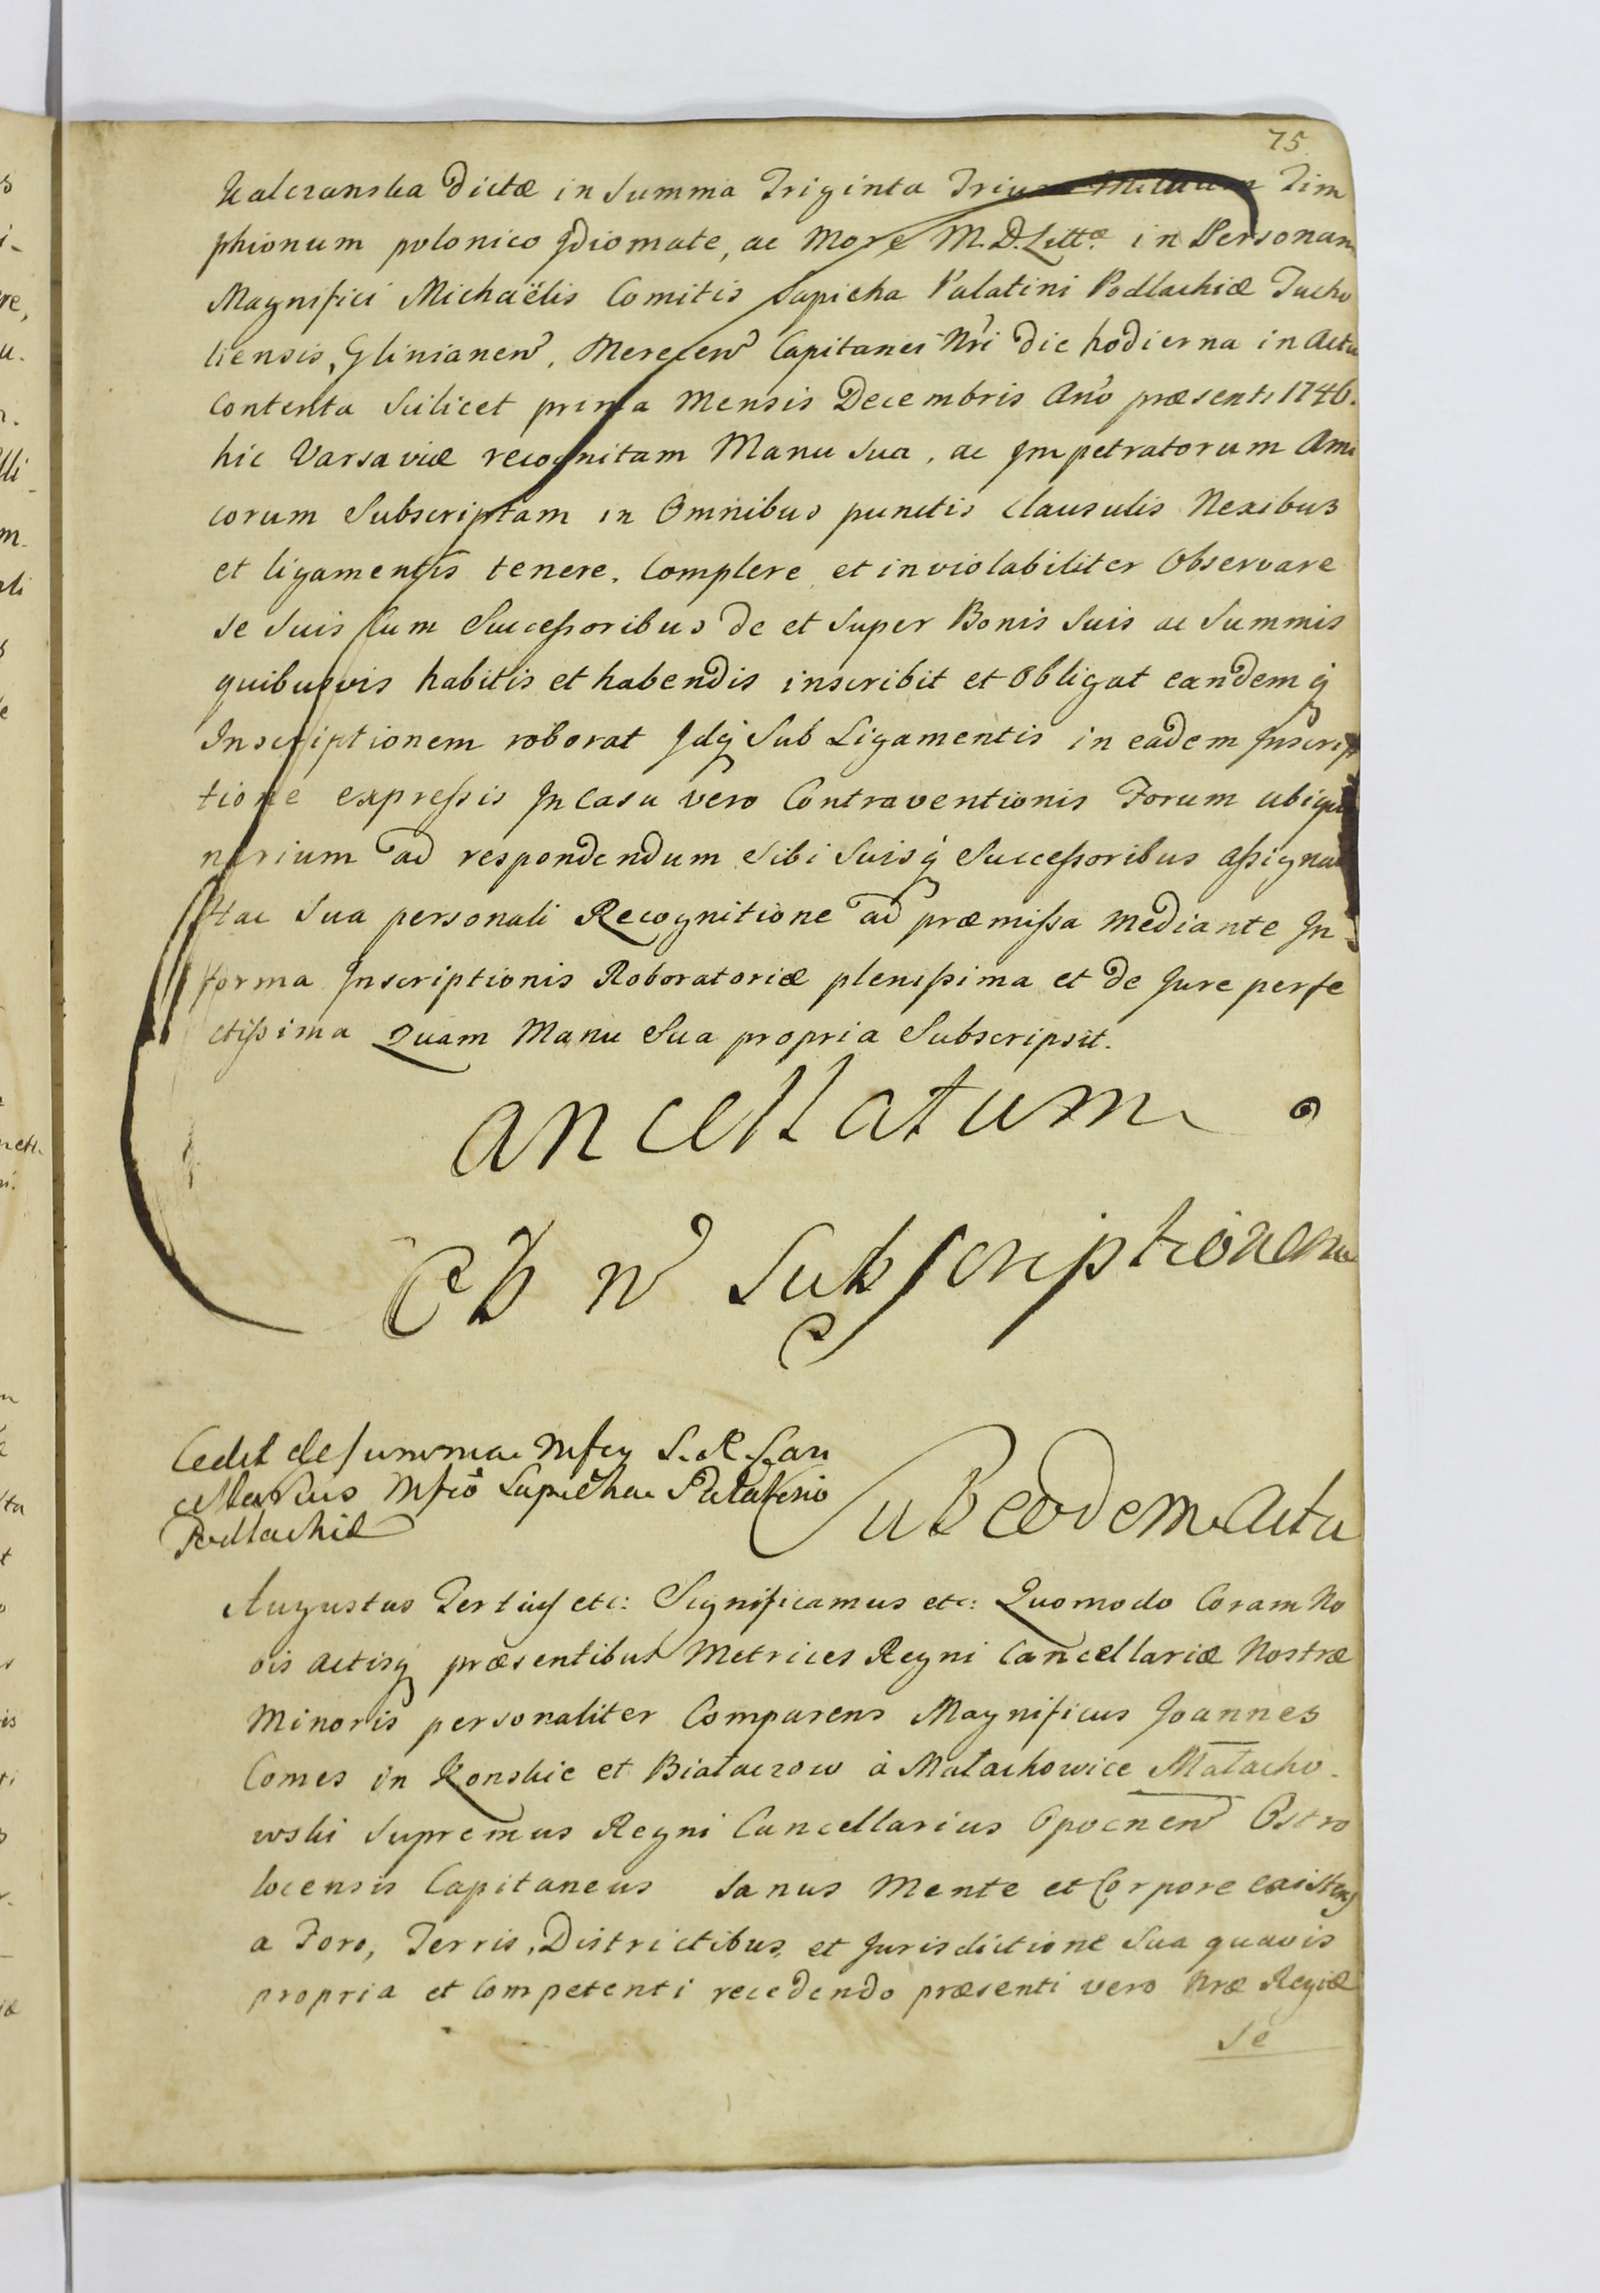 75
Kalczanska dictæ in Summa Triginta Trium Millium Tim
phionum polonico Jdiomate, ac More M.D.Littæ in Personam
Magnifici Michaëlis Comitis Sapieha Palatini Podlachiæ Tucho
liensis, Glinianen, Merecen Capitanei Nri die hodierna in Actu
contenta Scilicet prima Mensis Decembris Ano præsenti 1746.
hic Varsaviæ recognitam Manu Sua, ac Jmpetratorum Ami
corum Subscriptam in Omnibus punctis Clausulis Nexibus
et ligamentis tenere, Complere et inviolabiliter Observare
se Suis cum Successoribus de et Super Bonis Suis ac Summis
quibusvis habitis et habendis inscribit et Obligat eandemq
Inscriptionem roborat Jdq Sub Ligamentis in eadem Jnscrip
tione expressis Jn Casu vero Contraventionis Forum ubiqui
narium ad respondendum Sibi Suisq Successoribus assignat
Hac Sua personali Recognitione ad præmissa mediante Jn
forma Jnscriptionis Roboratoriæ plenissima et de Jure perfe
ctissima Quam Manu Sua propria Subscripsit.
Cancellatum
Ob n Subscriptionem
Cedit de summa Mfcy S. R. Can
cellarius Mfco Sapieha Palatino
Podlachiæ
Sub eodem Actu
Augustus Tertius etc: Significamus etc: Quomodo Coram No
bis Actisq præsentibus Metrices Regni Cancellariæ Nostræ
Minoris personaliter Comparens Magnificus Joannes
Comes in Konskie et Białaczow à Małachowice Małacho-
wski Supremus Regni Cancellarius Opocnen Ostro
locensis Capitaneus Sanus Mente et Corpore existens
a Foro, Terris, Districtibus, et Jurisdictione Sua quavis
propria et Competenti recedendo præsenti vero Nræ Regiæ
Se